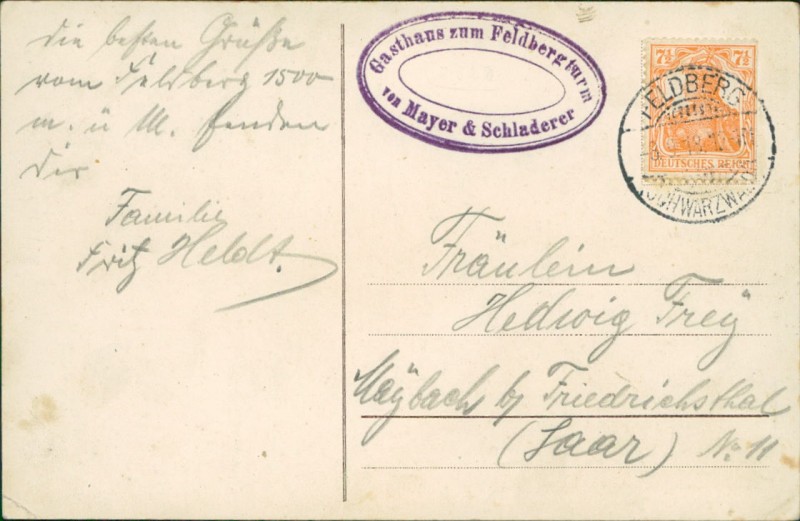 die besten Grüße
vom Feldberg 1500
m. ü M. senden
dir
Familie
Fritz Heldt.
Gasthaus zum Feldbergturm
von Mayer & Schladerer
7½ 7½
DEUTSCHES REICH
FELDBERG
(SCHWARZWALD)
Fräulein
Hedwig Freÿ
Maÿbach b/ Friedrichsthal
(Saar) No 11